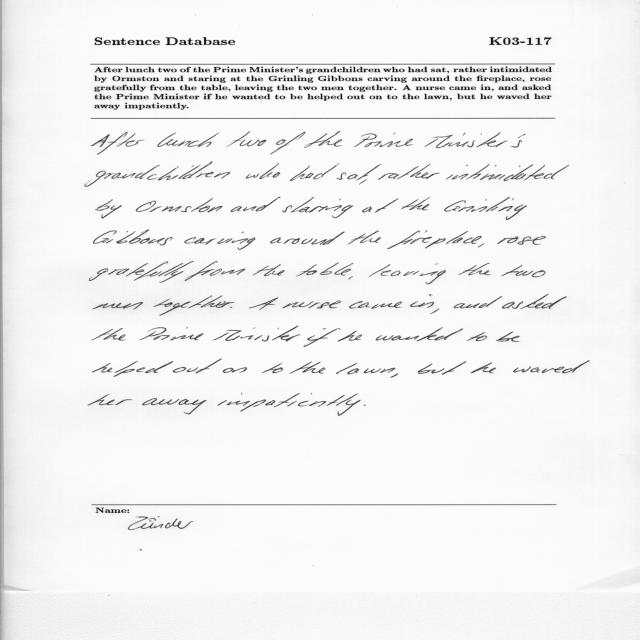 Sentence Database K03-117
After lunch two of the Prime Minister's grandchildren who had sat, rather intimidated
by Ormston and staring at the Grinling Gibbons carving around the fireplace, rose
gratefully from the table, leaving the two men together. A nurse came in, and asked
the Prime Minister if he wanted to be helped out on to the lawn, but he waved her
away impatiently.
After lunch two of the Prime Minister's
grandchildren who had sat, rather intimidated
by Ormston and staring at the Grinling
Gibbons carving around the fireplace, rose
gratefully from the table, leaving the two
men together. A nurse came in, and asked
the Prime Minister if he wanted to be
helped out on to the lawn, but he waved
her away impatiently.
Name: